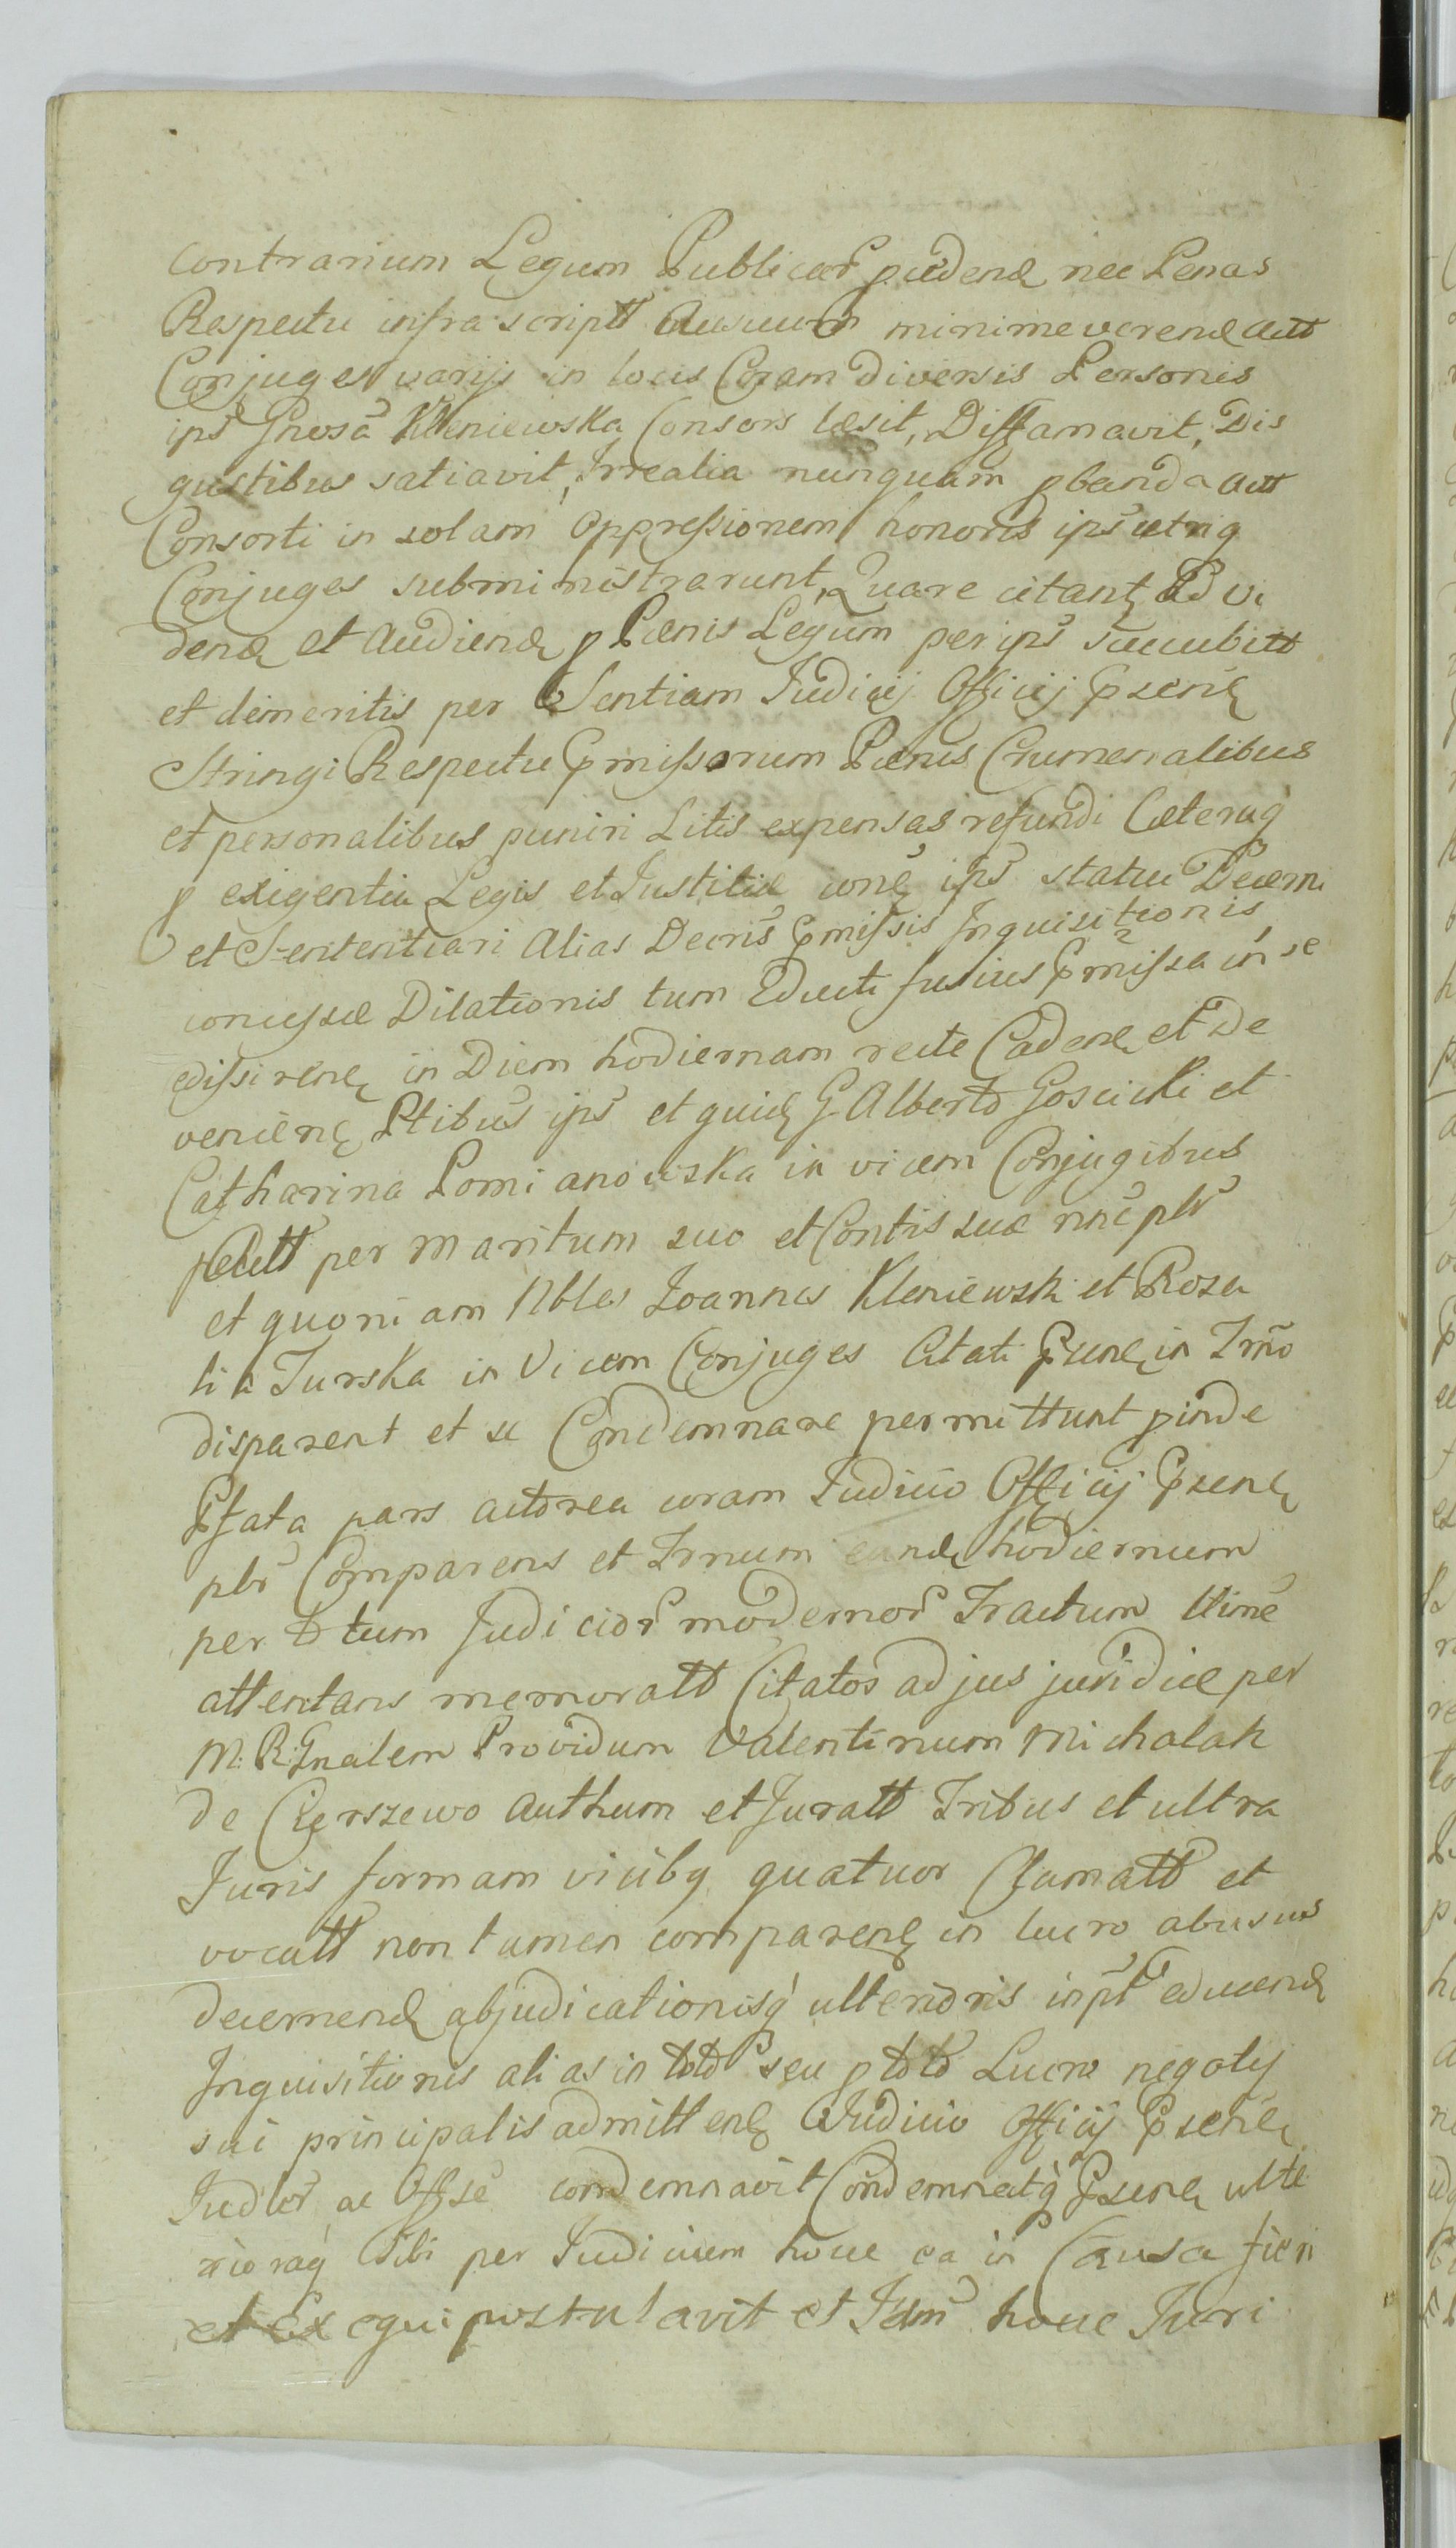 contrarium Legum Publicar pudend nec Penas
Respectu infra scriptt Ausuum minime verend autt
Conjuges varijs in locis Coram diversis Personis
ips Gnosa Kleniewska Consors læsit, Diffamavit, Dis
gustibus satiavit, Irrealia nunquam pbanda autt
Consorti in solam oppressionem honoris ips utriq
Conjuges subministrarunt, Quare citant Ad vi
dend et Audiend p Pænis Legum per ips succubitt
et demeritis per Sentiam Judicij Officij Psend
Stringi Respectu Pmissorum Pænis Crumenalibus
et personalibus puniri Litis expensas refundi Cæteraq
p exigentia Legis et Justitiæ cone ips statui Decerni
et Sententiari Alias Decris Pmissis Inquisitionis
concessæ Dilationis tum Educti fusius Pmissa in se
edisserend in Diem hodiernam recte Cadend et de
veniend Ptibus ips et quid G Alberto Goscicki et
Catharina Pomianowska in vicem Conjugibus
Autt per maritum suo et Contis suæ nne pbr
et quoniam Nbles Joannes Kleniewski et Rosa
lia Turska in Vicem Conjuges Citati Psend in Trno
disparent et se Condemnare permittunt pinde
Pfata pars actorea coram Judicio Officij Psend
pbr Comparens et Trnum eund hodiernum
per totum Judicior modernor Tractum ttime
attentans memoratt Citatos ad jus juridice per
M. R. Gnalem Providum Valentinum Michalak
de Cierszewo Authum et Juratt Tribus et ultra
Juris formam vicibq quatuor Clamatt et
vocatt non tamen comparend in lucro abusus
decernend abjudicationisq ulterioris inpt educend
Inquisitionis alias in toto seu p toto Lucro negotij
sui principalis admittend Judicio Officij Psend
Judlr ac Offse condemnavit Condemnatq Psend ulte
rioraq Sibi per Judicium hocce ea in Causa fieri
et Exequi postulavit et Idm hocce Juri